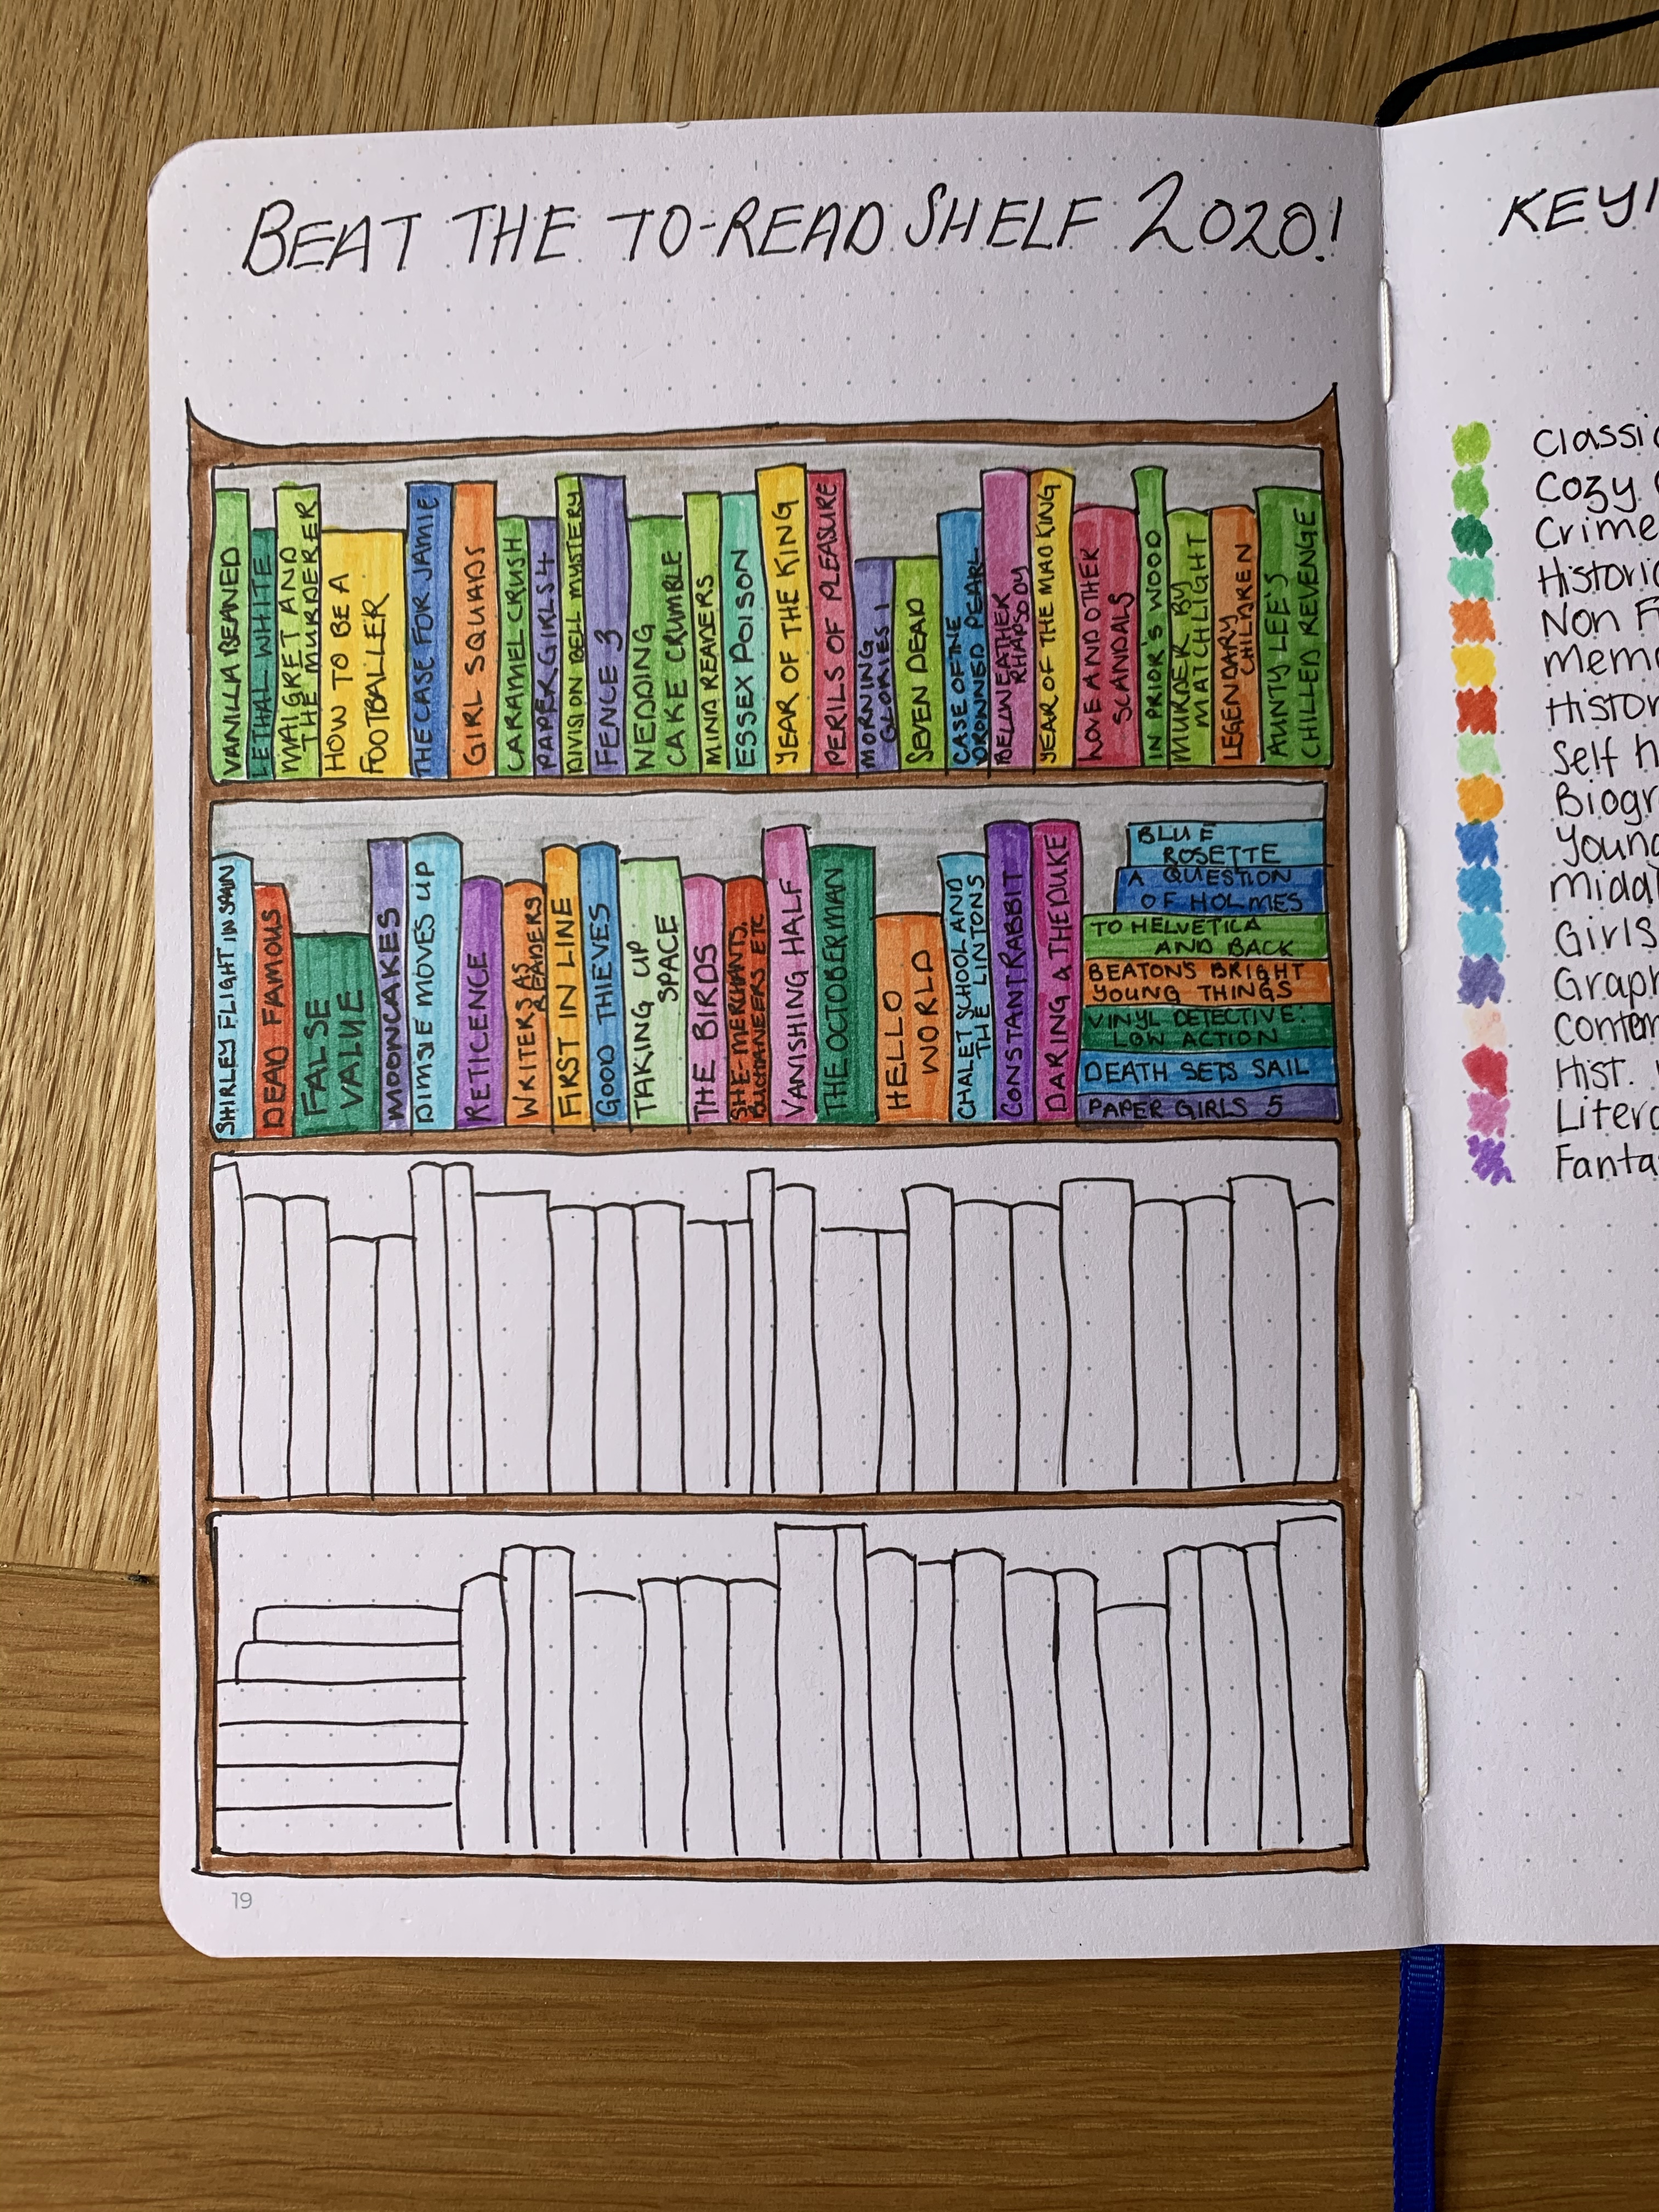 BEAT THE TO-READ SHELF 2020!
VANILLA BEANED
LETHAL WHITE
MAIGRET AND
THE MURDERER
HOW TO BE A
FOOTBALLER
THE CASE FOR JAMIE
GIRL SQUADS
CARAMEL CRUSH
PAPER GIRLS 4
DIVISION BELL MYSTERY
FENCE 3
WEDDING
CAKE CRUMBLE
MIND READERS
ESSEX POISON
YEAR OF THE KING
PERILS OF PLEASURE
MORNING
GLORIES 1
SEVEN DEAD
CASE OF THE
DROWNED PEARL
BELLWEATHER
RHAPSODY
YEAR OF THE MAD KING
LOVE AND OTHER
SCANDALS
IN PRIOR'S WOOD
MURDER BY
MATCHLIGHT
LEGENDARY
CHILDREN
AUNTY LEE'S
CHILLED REVENGE
SHIRLEY FLIGHT IN SPAIN
DEAD FAMOUS
FALSE
VALUE
MOONCAKES
DIMSIE MOVES UP
RETICENCE
WRITERS AS
READERS
FIRST IN LINE
GOOD THIEVES
TAKING UP
SPACE
THE BIRDS
SHE-MERCHANTS,
BUCHANEERS ETC
VANISHING HALF
THE OCTOBER MAN
HELLO
WORLD
CHALET SCHOOL AND
THE LINTONS
CONSTANT RABBIT
DARING & THE DUKE
BLUE
ROSETTE
A QUESTION
OF HOLMES
TO HELVETICA
AND BACK
BEATON'S BRIGHT
YOUNG THINGS
VINYL DETECTIVE:
LOW ACTION
DEATH SETS SAIL
PAPER GIRLS 5
19
KEY
Classi
Cozy
Crime
Historic
Non F
Mem
Histor
Self h
Biogr
Young
Middl
Girls
Graph
Contem
Hist.
Litera
Fanta